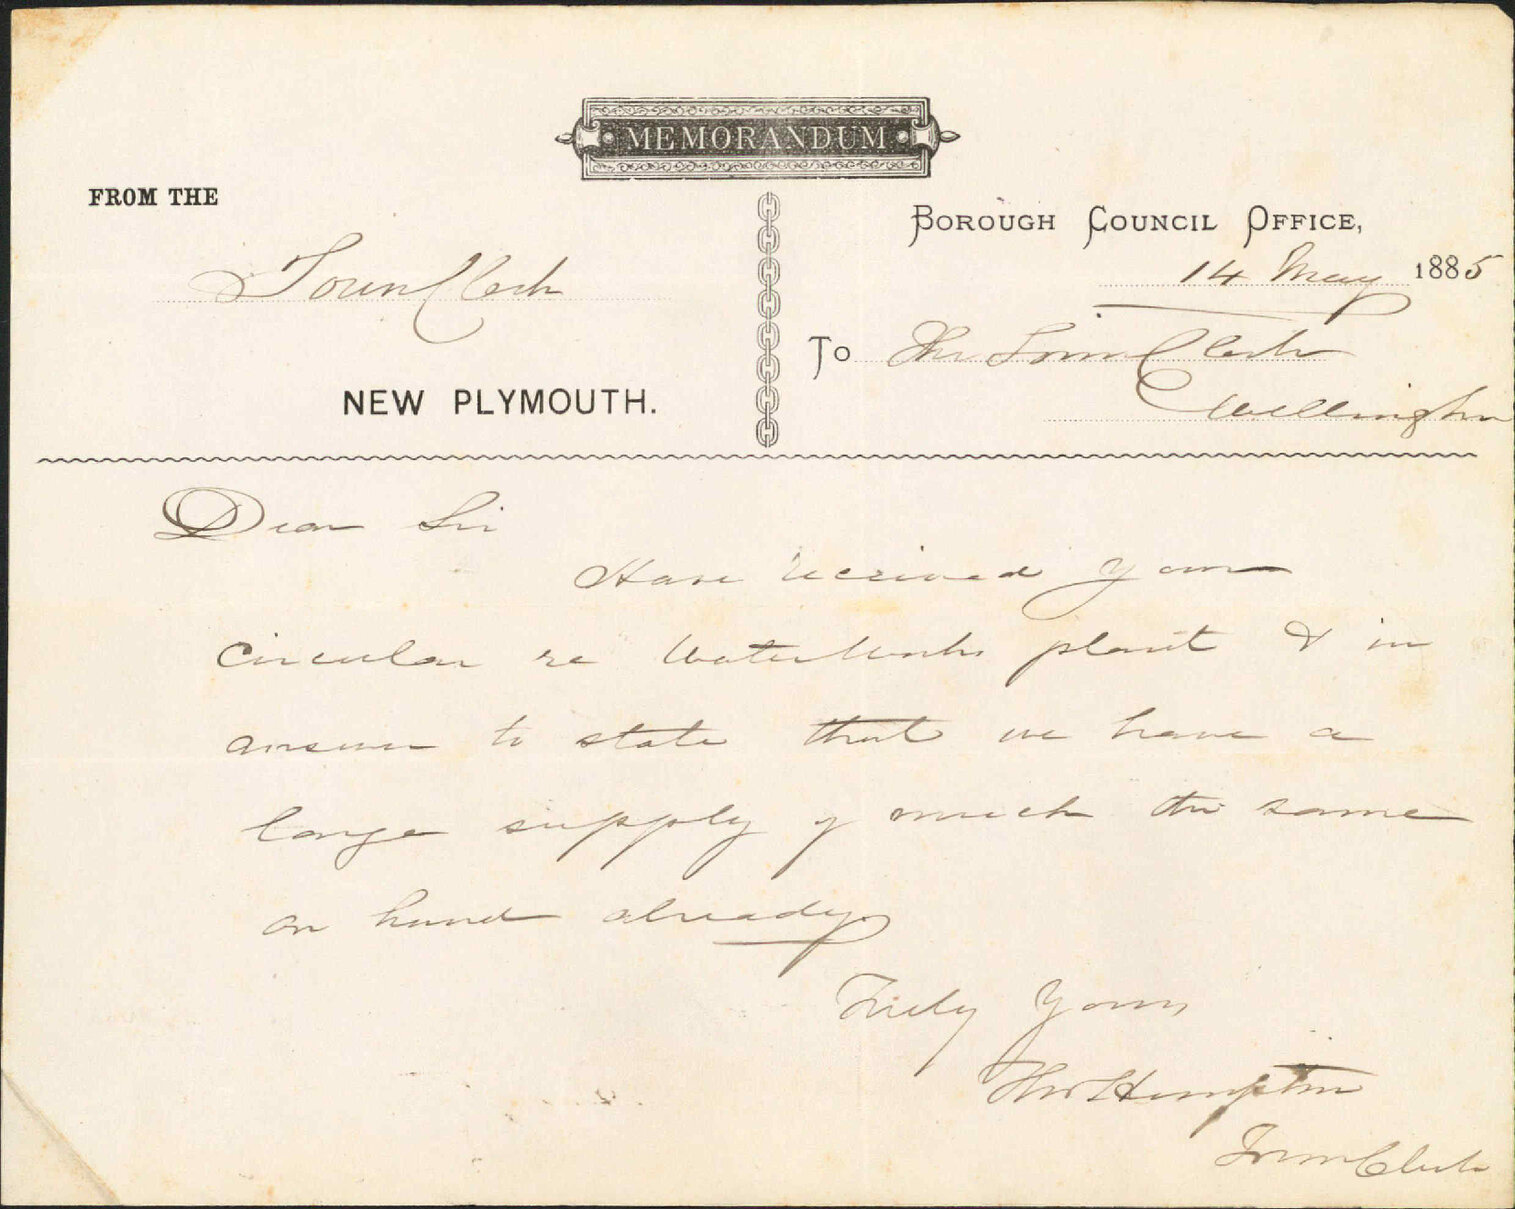 MEMORANDUM
FROM THE
Town Clerk
NEW PLYMOUTH.
BOROUGH COUNCIL OFFICE,
14 May 1885
To The Town Clerk
Wellington
Dear Sir
Have received your
circular re Water Works plant & in
answer to state that we have a
large supply of much the same
on hand already
Truly Yours
Hempton
Town Clerk